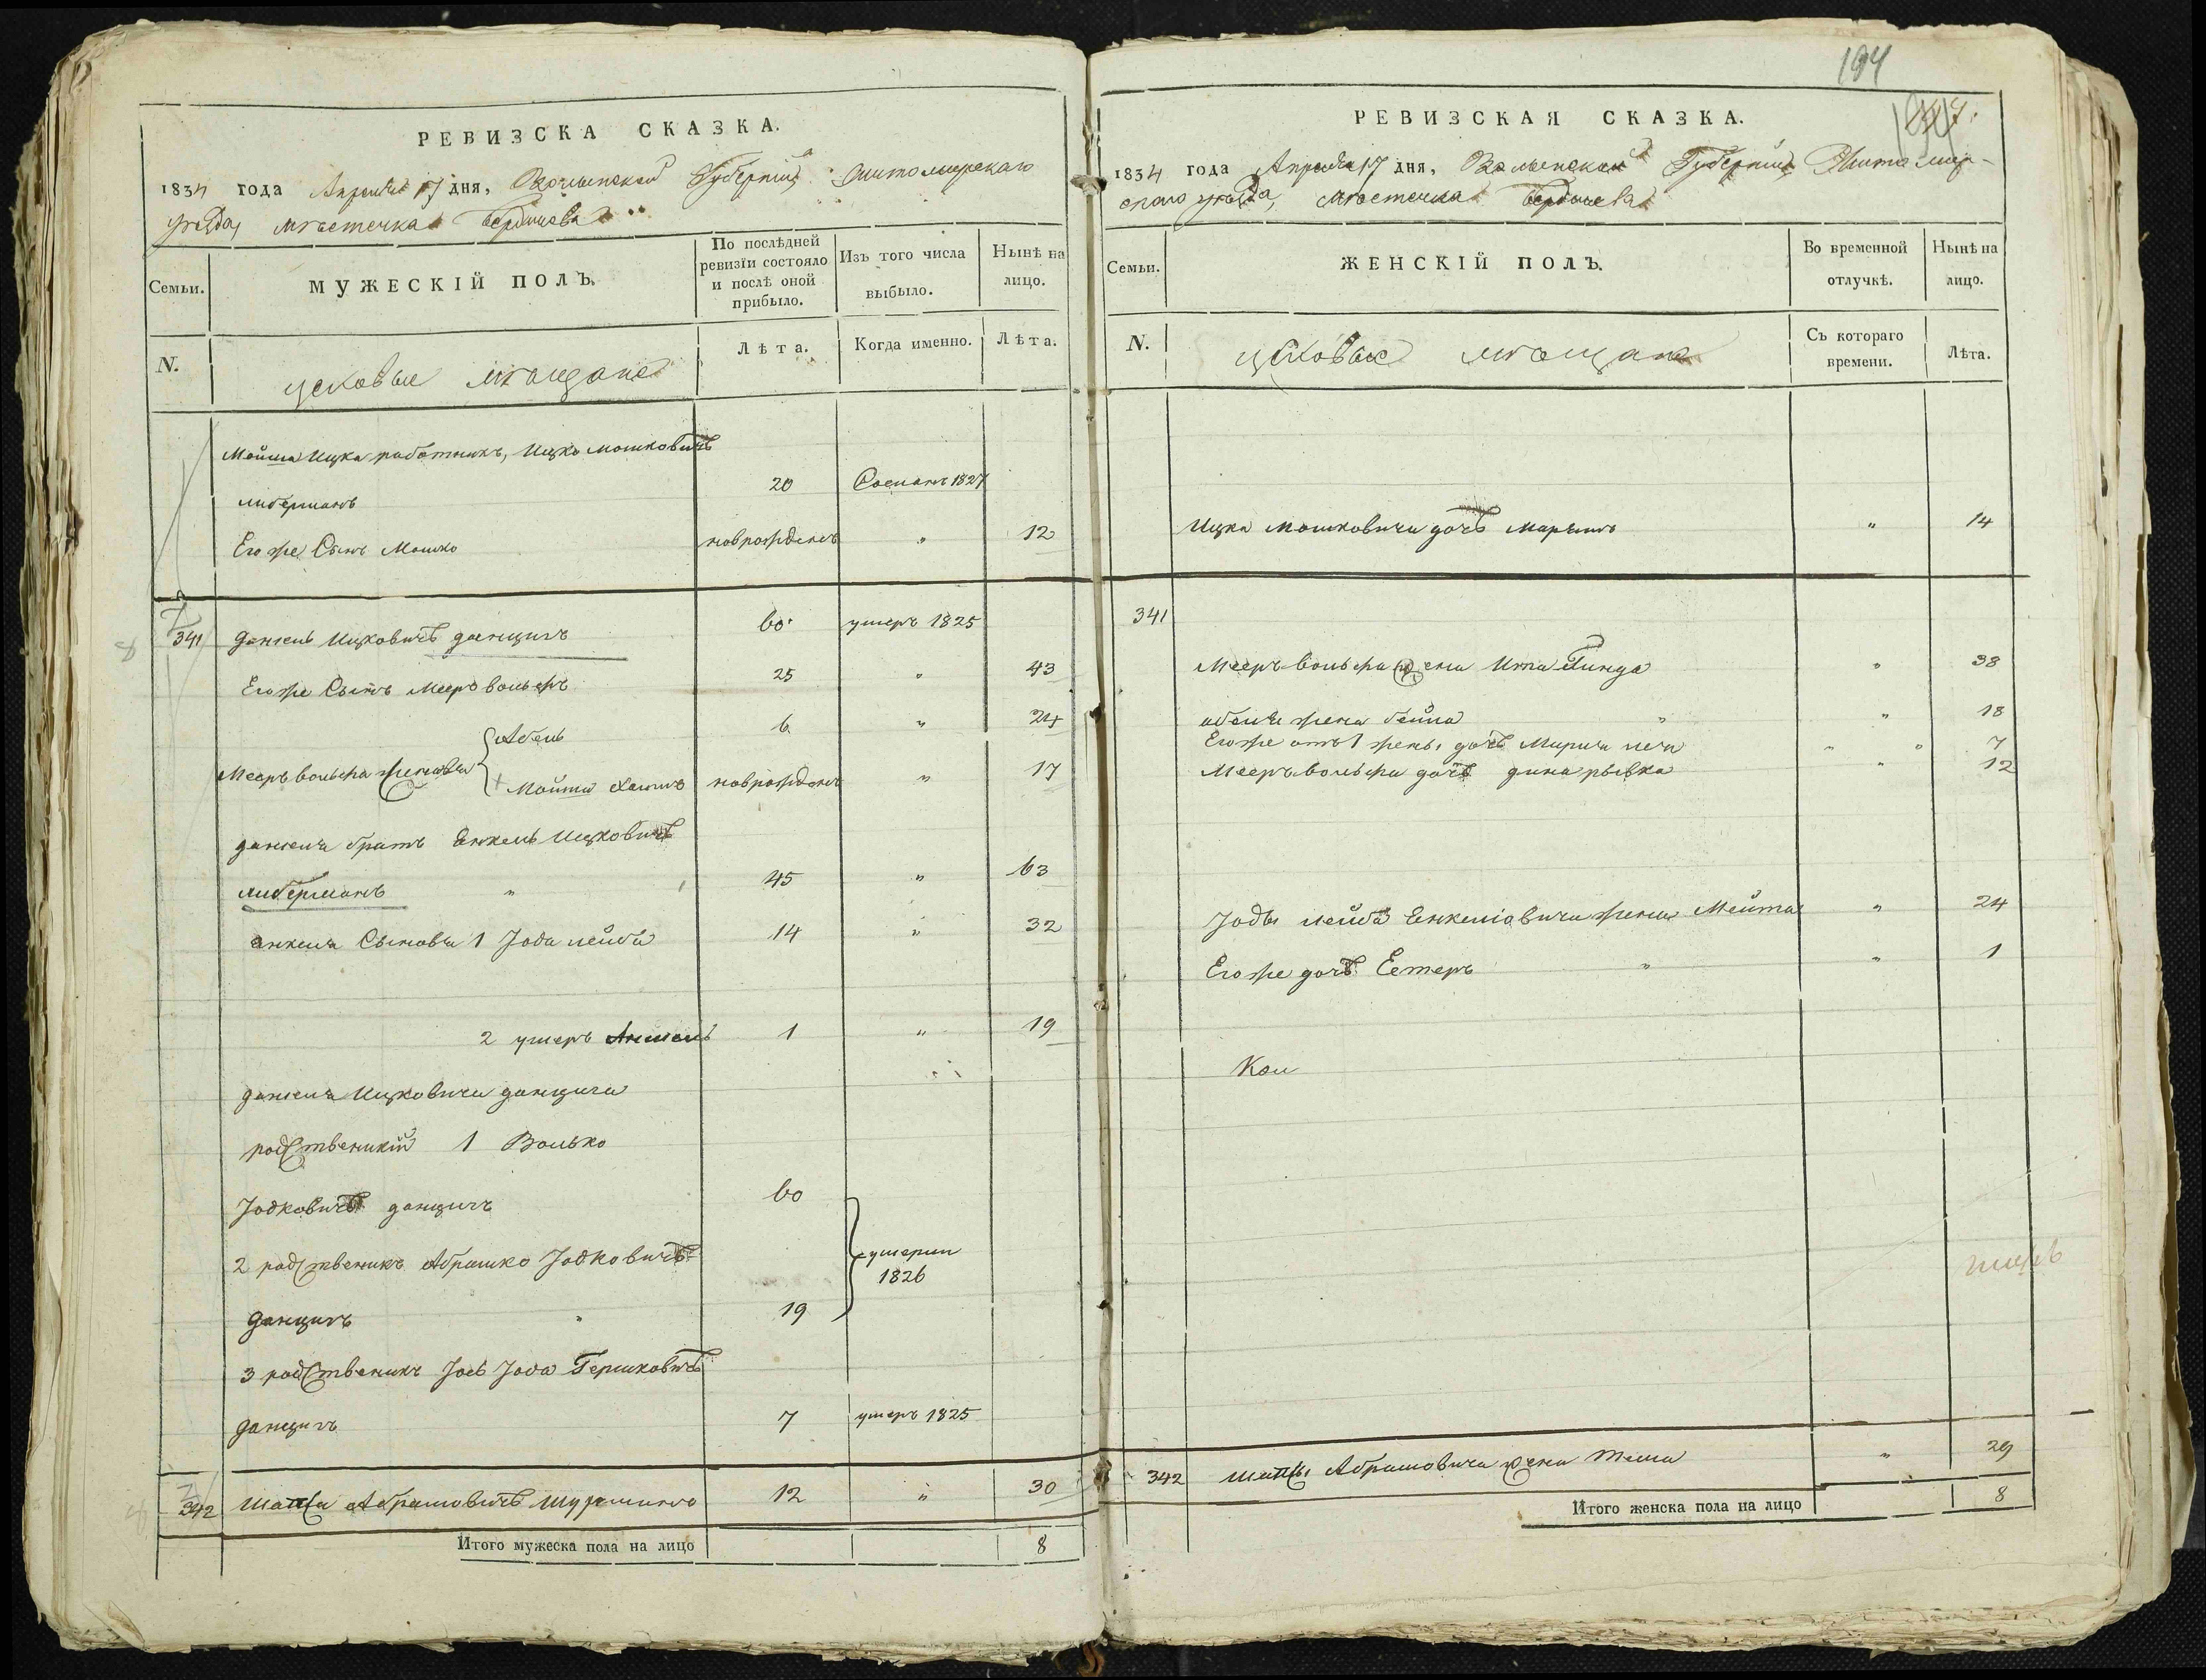 РЕВИЗСКА СКАЗКА.
1834 года Апреля 17 дня, Волынской Губернии Житомирскаго
уѣзда, мѣстечка Бердичева
Семьи.
МУЖЕСКІЙ ПОЛЪ.
По послѣдней ревизіи состояло и послѣ оной прибыло.
Изъ того числа выбыло.
Нынѣ на лицо.
N.
цеховые мѣщане
Лѣта.
Когда именно.
Лѣта.
Мойша Ицка работникъ, Ицко Мошковичъ
либерманъ 20 1827
Его же Сынъ Мошко новрожденъ " 12
341 Данхель Ицковичъ данцигъ 60 умеръ 1825
Его же Сынъ Мееръ вольфъ 25 " 43
Мееръ вольфа сыновья Абель 6 " 24
Мойша Хаимъ новрожденъ " 17
братъ Енкель Ицковичъ
либерманъ " 45 " 63
енкеля Сыновья 1 Іода лейба 14 " 32
2 умеръ Аншель 1 " 19
Ицковича данцига
родственикій 1 Волько
Іодковичъ данцигъ 60
2 родственикъ Абрашко Іодковичъ
умерли
1826
данцигъ " 19
3 родственикъ Іосъ Іода Гершковичъ
данцигъ 7 умеръ 1825
342 Шапса Абрамовичъ 12 " 30
Итого мужеска пола на лицо 8
194
РЕВИЗСКАЯ СКАЗКА.
1834 года Апреля 17 дня, Волынской Губерніи Житомир-
скаго уѣзда, мѣстечка Бердичева
Семьи.
ЖЕНСКІЙ ПОЛЪ.
Во временной отлучкѣ.
Нынѣ на лицо.
N.
цеховые мѣщане
Съ котораго времени.
Лѣта.
Ицка Мошковича дочь Марьямъ " 14
341
Мееръ вольфа жена Ита Гинда " 38
абеля жена бейла " " 18
Его же отъ 1 жены дочь Мириа леа " " 7
Мееръ вольфа дочь дина рывка " 12
Іоды лейба Енкеліовича жена Мейта " 24
Его же дочь Естеръ " " 1
342 Шапсы Абрамовича жена " 29
Итого женска пола на лицо 8